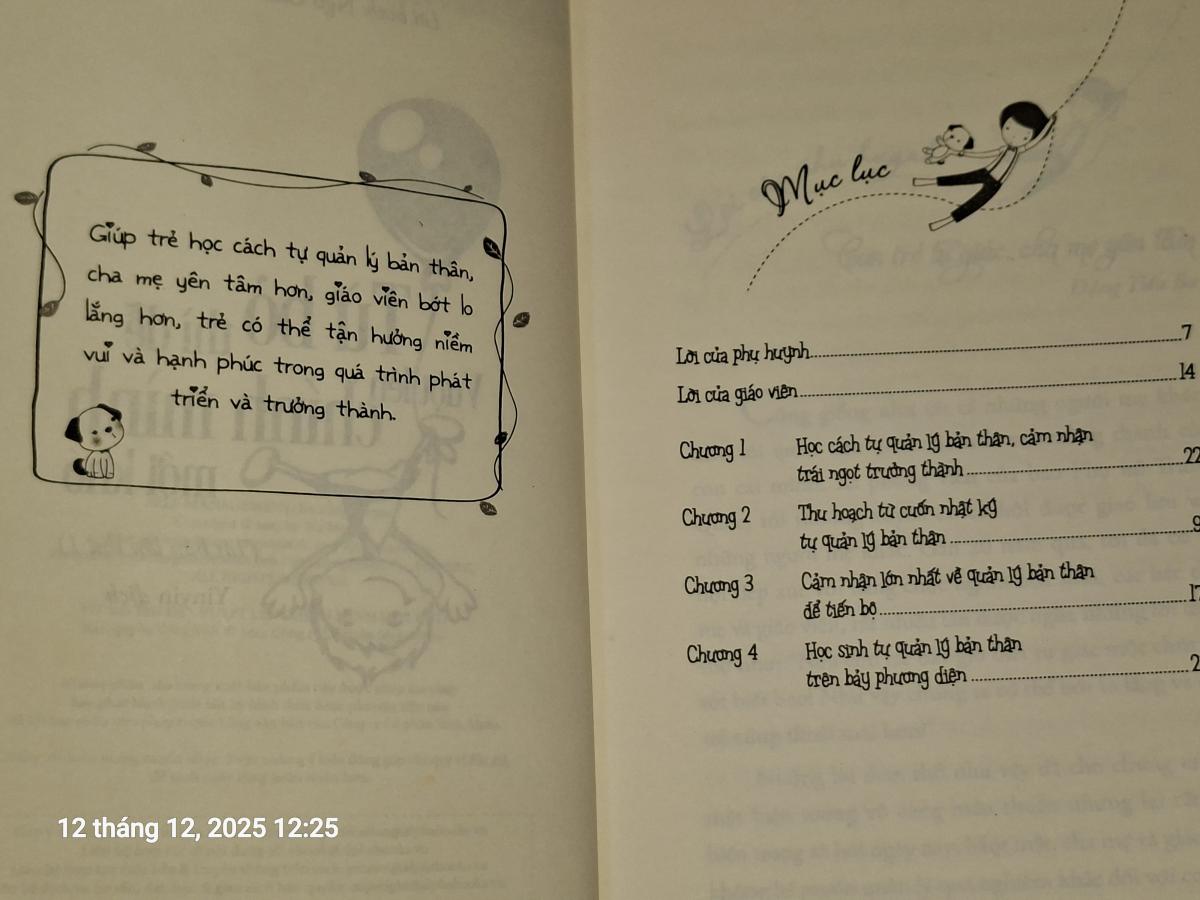 Giúp trẻ học cách tự quản lý bản thân,
cha mẹ yên tâm hơn, giáo viên bớt lo
lắng hơn, trẻ có thể tận hưởng niềm
vui và hạnh phúc trong quá trình phát
triển và trưởng thành.
12 tháng 12, 2025 12:25
Mục lục
Lời của phụ huynh..........7
Lời của giáo viên..........14
Chương 1 Học cách tự quản lý bản thân, cảm nhận
trái ngọt trưởng thành..........22
Chương 2 Thu hoạch từ cuốn nhật ký
tự quản lý bản thân..........9
Chương 3 Cảm nhận lớn nhất về quản lý bản thân
để tiến bộ..........17
Chương 4 Học sinh tự quản lý bản thân
trên bảy phương diện..........2